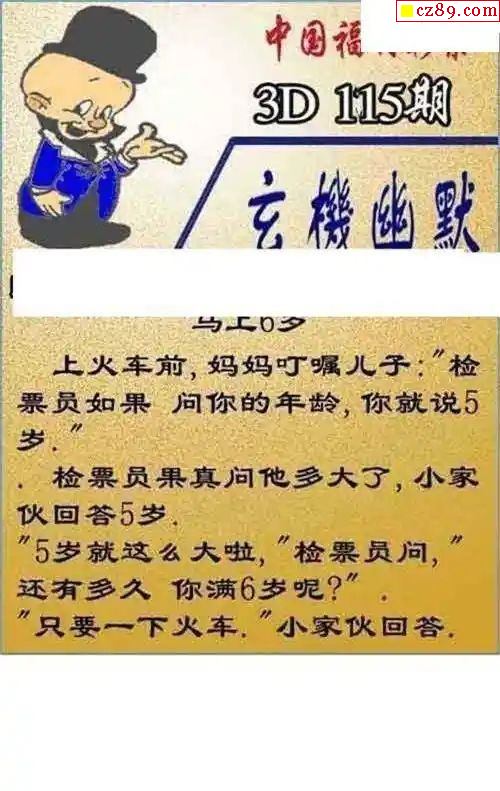 cz89.com
中国福
3D 115期
玄機幽默
马上6岁
上火车前,妈妈叮嘱儿子:"检
票员如果 问你的年龄,你就说5
岁."
. 检票员果真问他多大了,小家
伙回答5岁.
"5岁就这么大啦,"检票员问,"
还有多久 你满6岁呢?" .
"只要一下火车."小家伙回答.